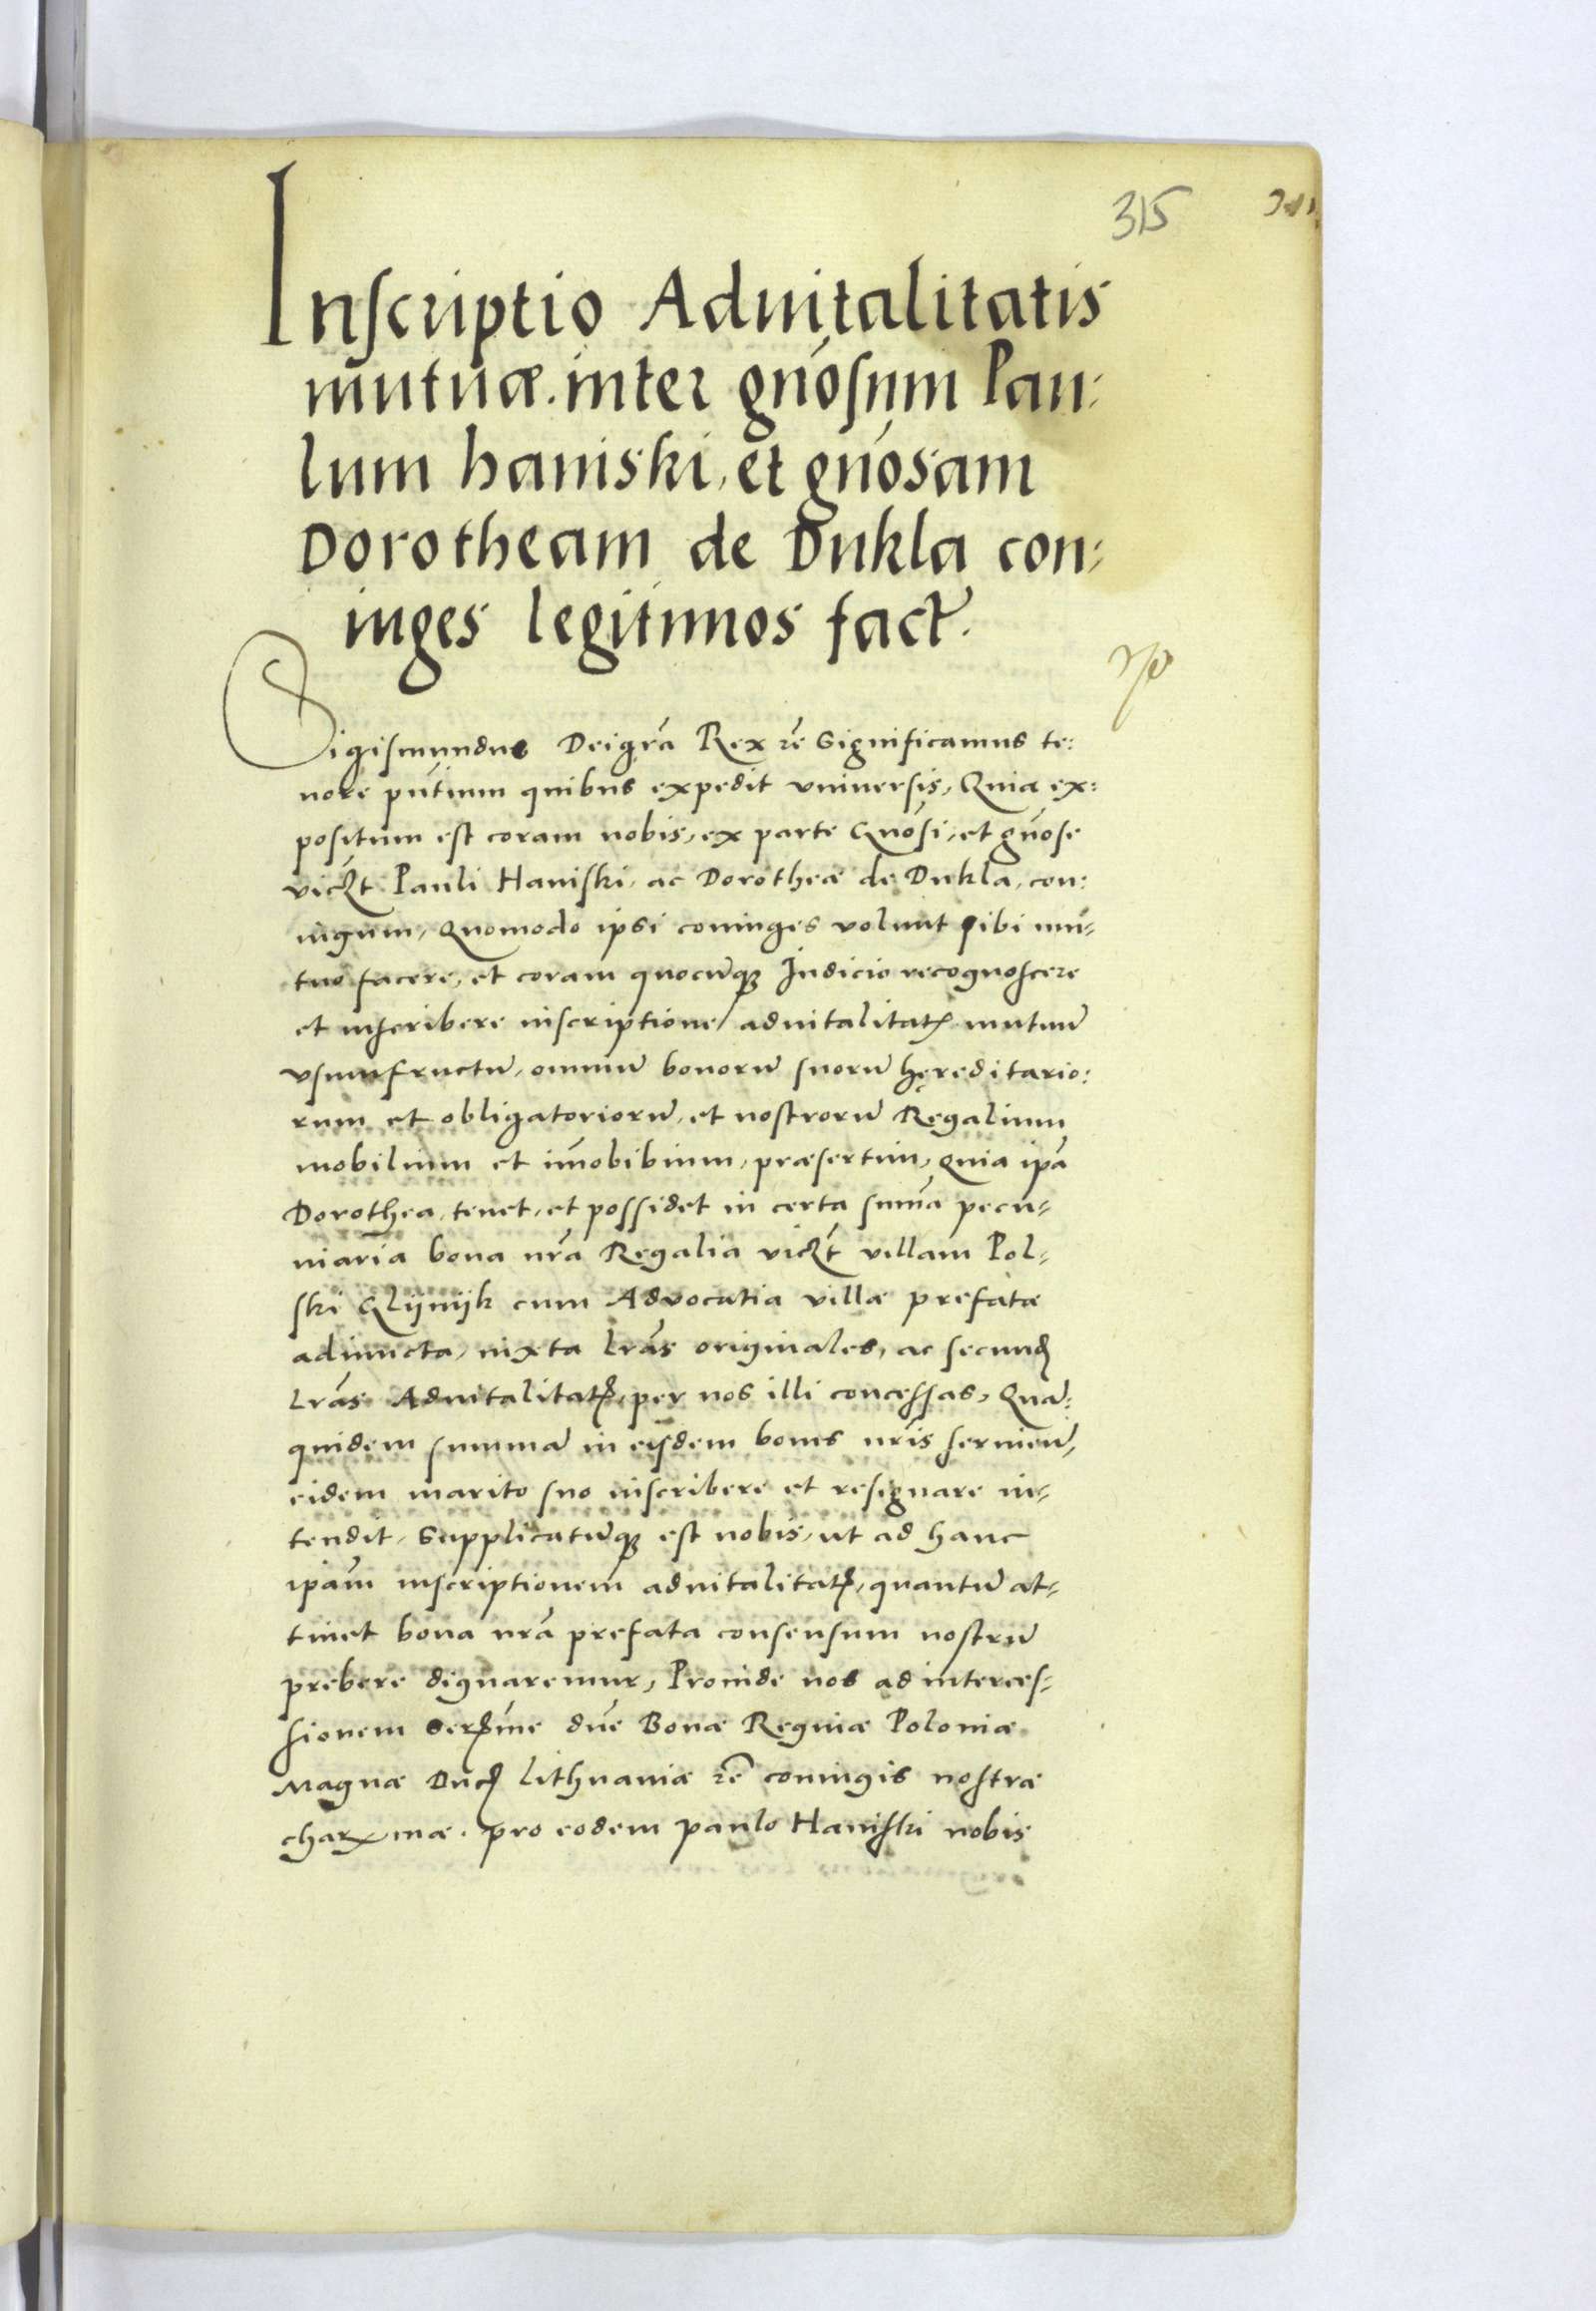 315
Inscriptio Aduitalitatis
mutuæ. inter gnősum Pau:
lum haniski, et gnősam
Dorotheam de Dukla con:
iuges legitimos fact.
Sigismundus Deigrã Rex rc̃ Significamus te:
nore pñtium quibus expedit vniuersis, Quia ex:
positum est coram nobis, ex parte Gnősi, et gnőse
vicꝫt Pauli Haniski, ac Dorotheæ de Dukla, con:
iugum, Quomodo ipsi coniuges volunt sibi mu-
tuo facere, et coram quocũqꝫ Iudicio recognoscere
et inscribere inscriptione aduitalitatꝭ mutuũ
vsumfructũ, omniũ bonorũ suorũ hęreditario:
rum et obligatoriorũ, et nostrorũ Regalium
mobilium et im̃obibium, præsertim, quia ipã
Dorothea, tenet, et possidet in certa sum̃a pecu-
niaria bona nrã Regalia vicꝫt villam Pol-
ski Glijnijk cum Aduocatia villæ prefatæ
adiuncta, iuxta lrãs originales, ac secundꝭ
lrãs Aduitalitatꝭ, per nos illi concessas, Quã:
quidem summã in eisdem bonis nrĩs seruieñ,
eidem marito suo inscribere et resignare in-
tendit, Supplicatũqꝫ est nobis, ut ad hanc
ipãm inscriptionem aduitalitatꝭ, quantũ at-
tinet bona nrã prefata consensum nostrũ
prebere dignaremur, Proinde nos ad interces-
sionem Serꝭme dnẽ Bonæ Reginæ Poloniæ
Magnæ Ducꝭ Lithuaniæ rc̃ coniugis nostræ
charꝭmæ. pro eodem paulo Haniski nobis